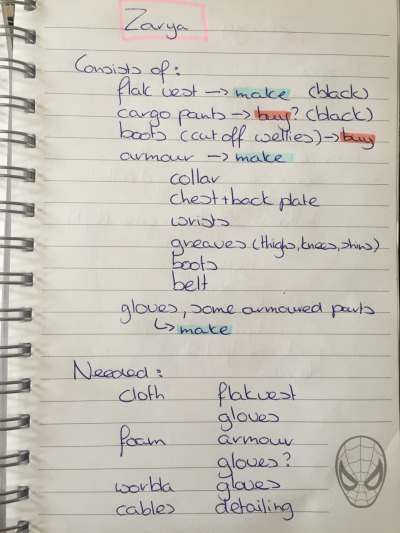 Zarya
Consists of:
flak vest → make (black)
cargo pants → buy? (black)
boots (cut off wellies) → buy
armour → make
collar
chest + back plate
wrists
greaves (thighs, knees, shins)
boots
belt
gloves, some armoured parts
↳ make
Needed:
cloth flakvest
gloves
foam armour
gloves?
worbla gloves
cables detailing